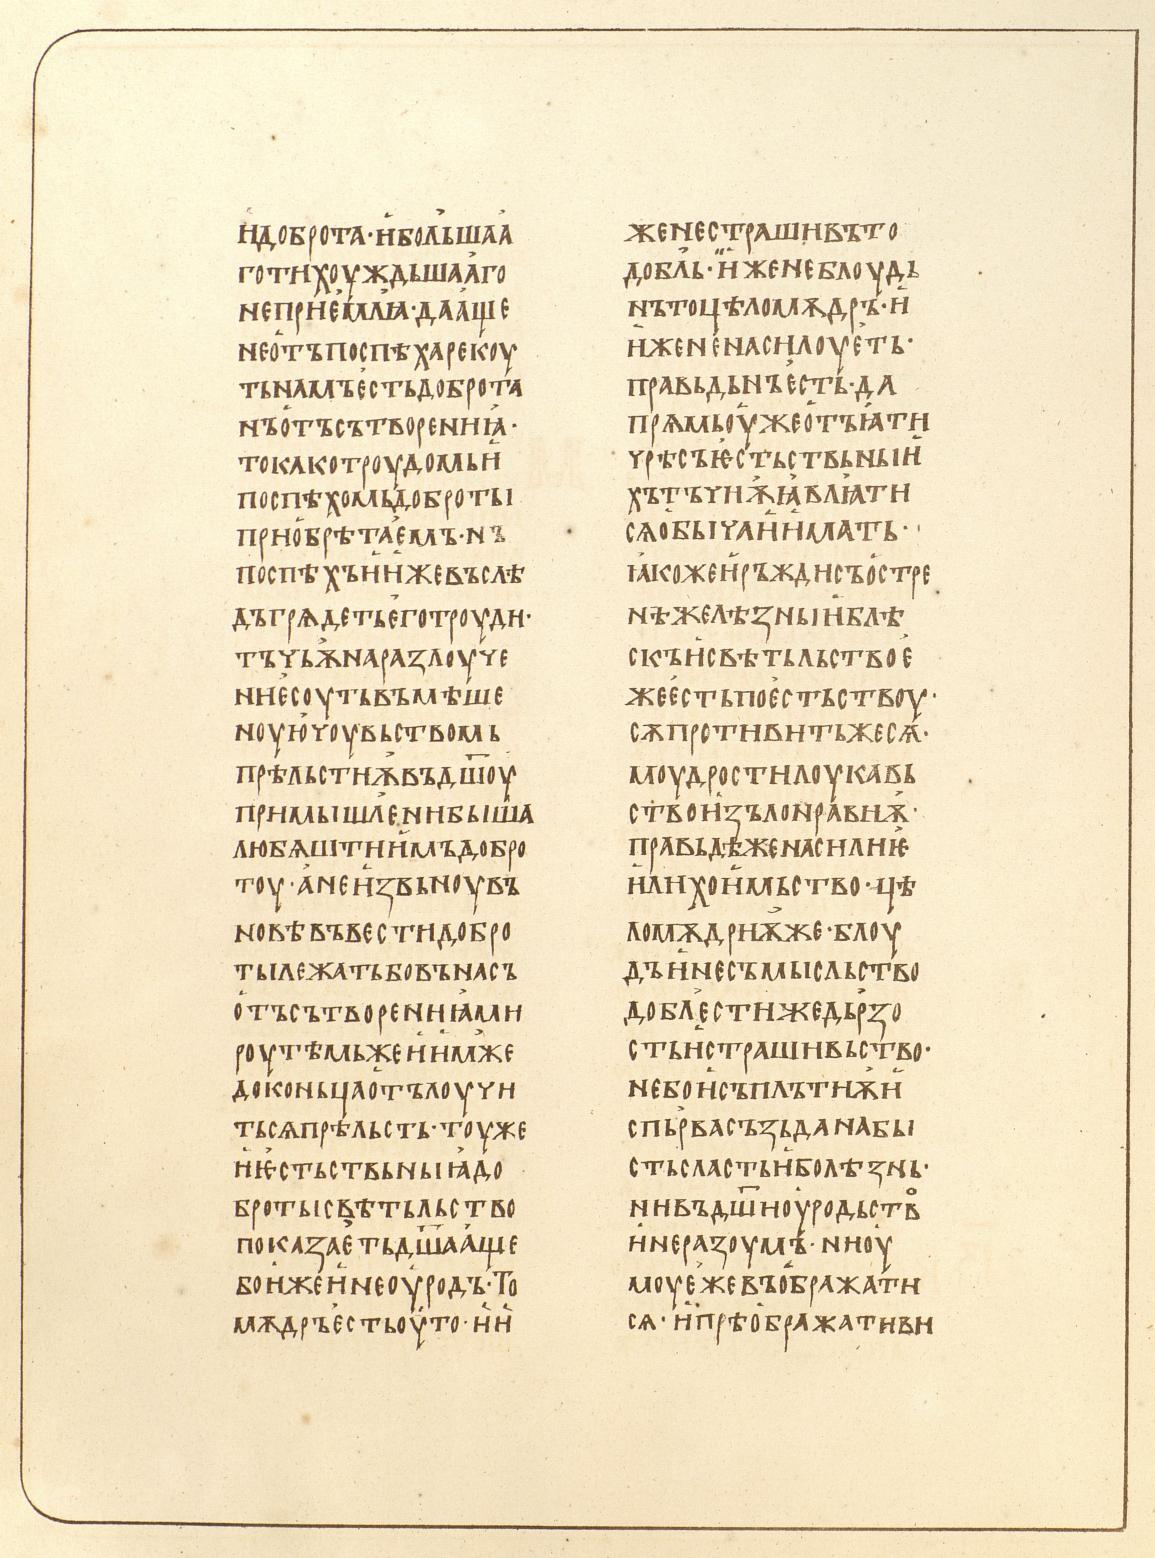 и҆доброта· и҆большаа҆
готихоуждьшаа҆го
неприе҆млѭ· даа҆ще
нео҆тъпоспѣхарекоу
тьнамъе҆стьдоброта
нъо҆тъсътворениꙗ҆·
токакотроудомьи҆
поспѣхомьдоброты
прио҆брѣтае҆мъ· нъ
поспѣхъи҆и҆жевъслѣ
дъгрѧдетье҆готроуди·
тъчьѫ҆наразлоуче
ние҆соутьвъмѣ́ще
ноую҆чоувьствомь
прѣльстиѫ҆въдш҃оу
примышле҆нибыша
любѧштиимъдобро
тоу· а҆неи҆звьноувъ
новѣвъвестидобро
тылежатьбовънасъ
о҆тъсътворениꙗ҆ми
роутѣмьжеи҆и҆мъже
доконьцао҆тълоучи
тьсѧпрѣльсть· тоуже
и҆ѥстьствьныꙗ҆до
бротысвѣтельство
показае҆тьдш҃аа҆ще
бои҆жеи҆неоу҆родъ· То
мѫдръе҆стьоу҆то· и҆и҆
женестрашивъто
добл҄ь· и҆женеблоудь
нътоцѣломѫдръ· и҆
и҆жене҆насилоуе҆ть·
правьдьнъе҆сть· да
прѧмьоу҆жео҆тъꙗ҆ти
чрѣсъѥ҆стьствьныи҆
хътъчиѭ҆ꙗ҆влꙗ҆ти
сѧо҆бычаи҆и҆мать·
ꙗ҆кожеи҆ръждисъо҆стре
нѣжелѣзныи҆блѣ
скъи҆свѣтельствое҆
жее҆стьпое҆стьствоу·
сѫпротивитьжесѧ҆·
моудростилоукавь
ствои҆зълонравиѭ҆·
правьдѣженасилиѥ҆
и҆лихои҆мьство· цѣ
ломѫдриѭ҆же· блоу
дъи҆несъмысльство
добл҄естижедьрзо
стьи҆страшивьство·
небои҆съплътиѭ҆и҆
спьрвасъзьданабы
стьсластьи҆болѣзнь·
нивъдш҃иоу҆родьство
и҆неразоумъ· ниоу҆
моуе҆жевъо҆бражати
сѧ· и҆прѣо҆бражативи